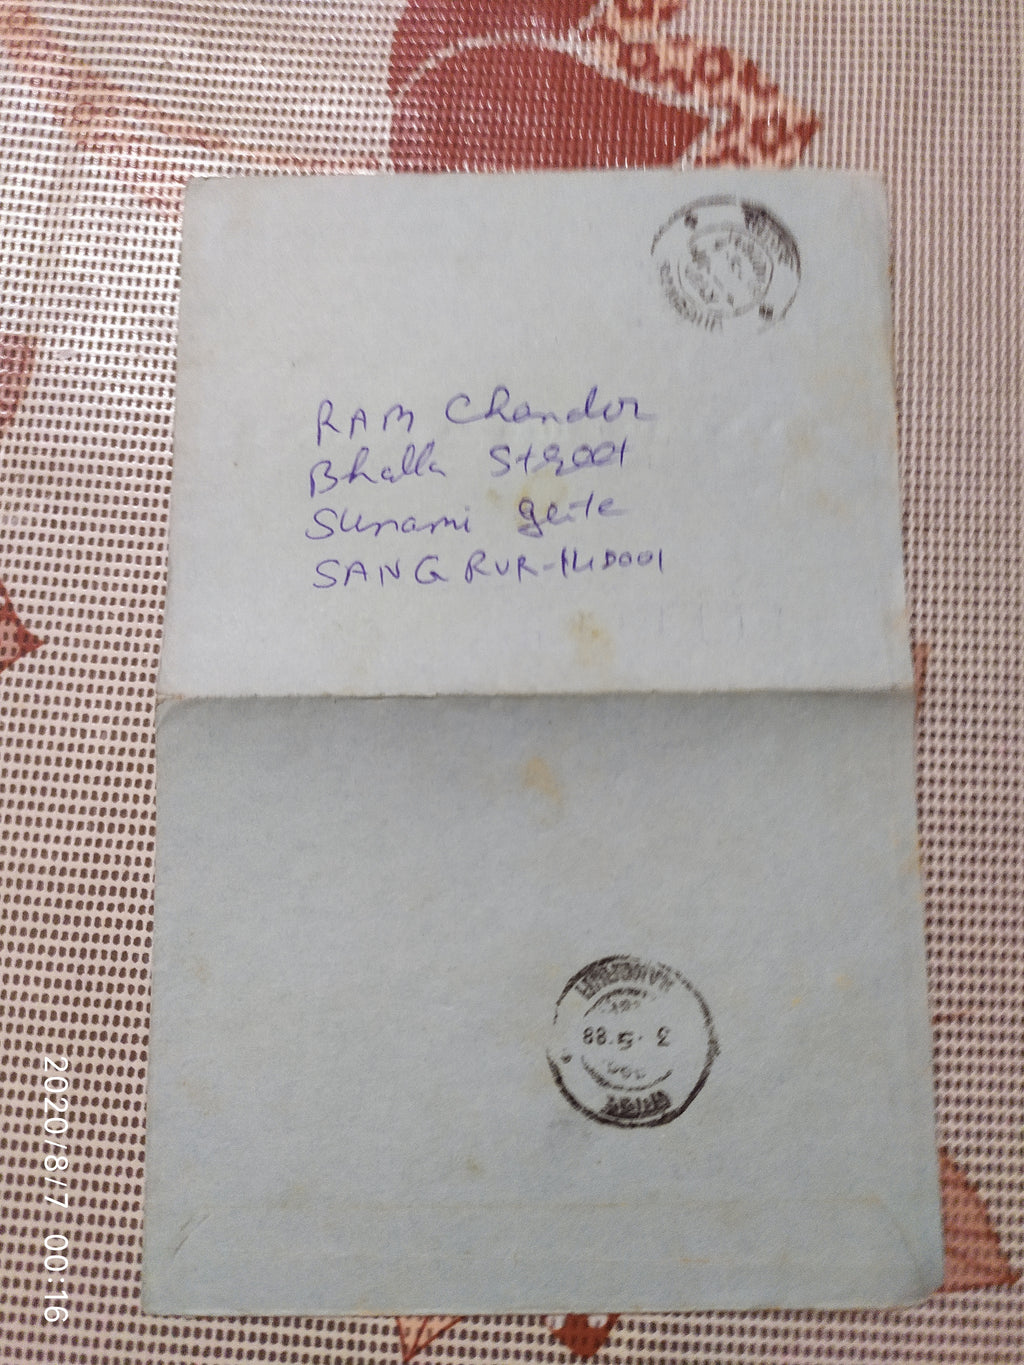 RAM Chander
Bhalla Street
Sunami gate
SANGRUR-148001
3 .5.88
2020/8/7 00:16